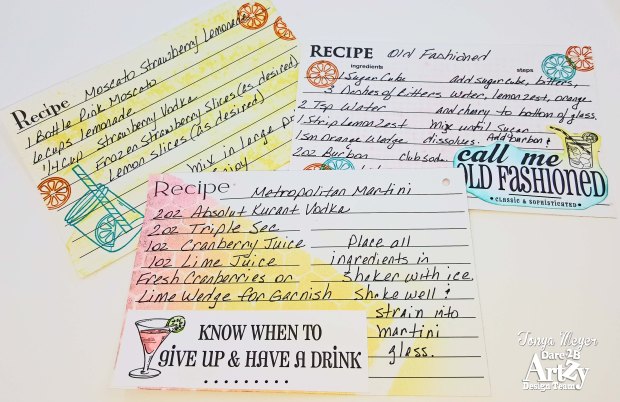 Recipe Moscato Strawberry Lemonade
1 Bottle Pink Moscato
6 Cups Lemonade
1/4 Cup Strawberry Vodka
Frozen Strawberry Slices (as desired)
Lemon Slices (as desired)
Mix in large
enjoy
RECIPE Old Fashioned
ingredients steps
1 Sugar Cube add sugar cube, bitters,
3 Dashes of Bitters water, lemon zest, orange
2 Tsp Water and cherry to bottom of glass.
1 Strip Lemon Zest Mix until Sugar
1 sm Orange Wedge dissolves. Add burbon &
2oz Burbon club soda.
call me
OLD FASHIONED
• CLASSIC & SOPHISTICATED •
Recipe Metropolitan Martini
2oz Absolut Kurant Vodka
2oz Triple Sec
1oz Cranberry Juice Place all
1oz Lime Juice ingredients in
Fresh Cranberries or shaker with ice
Lime Wedge for Garnish Shake well &
strain into
martini
glass.
KNOW WHEN TO
GIVE UP & HAVE A DRINK
Tonya Meyer
Dare 2B
Artzy
Design Team